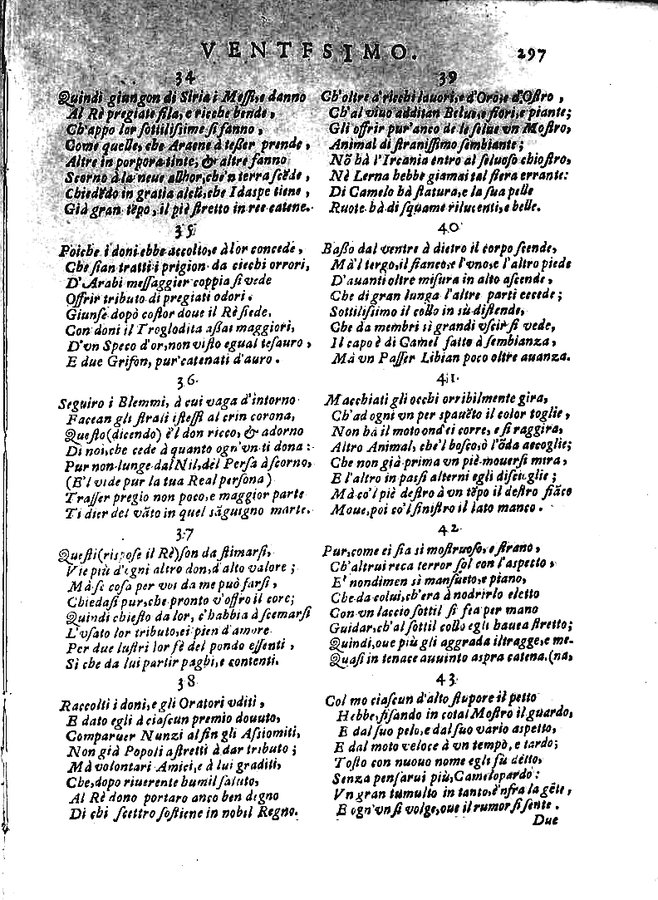 VENTESIMO. 297
34
Quindi giungon di Siria i Messi, e danno
Al Rè pregiate fila, e ricche bende,
Ch'appo lor sottilissime si fanno,
Come quelle, che Aracne à tesser prende,
Altre in porpora tinte, & altre fanno
Scorno à la neue allhor, che'n terra scẽde,
Chiedẽdo in gratia alcũ, che Idaspe tiene,
Già gran tẽpo, il piè stretto in ree catene.
35
Poiche i doni ebbe accolto, e à lor concede,
Che sian tratti i prigion da ciechi orrori,
D'Arabi messaggier coppia si vede
Offrir tributo di pregiati odori.
Giunse dopò costor doue il Rè siede,
Con doni il Troglodita assai maggiori,
D'vn Speco d'or, non visto egual tesauro,
E due Grifon, pur catenati d'auro.
36
Seguiro i Blemmi, à cui vaga d'intorno
Facean gli strali istessi al crin corona,
Questo (dicendo) è'l don ricco, & adorno
Di noi, che cede à quanto ogn'vn ti dona:
Pur non lunge dal Nil, del Persa à scorno,
(E'l vide pur la tua Real persona)
Trasser pregio non poco, e maggior parte
Ti dier del vãto in quel sãguigno marte.
37
Questi (rispose il Rè) son da stimarsi,
Vie più d'ogni altro don, d'alto valore;
Mà se cosa per voi da me può farsi,
Chiedasi pur, che pronto v'offro il core;
Quindi chiesto da lor, c'habbia à scemarsi
L'vsato lor tributo, ei pien d'amore
Per due lustri lor fè del pondo essenti,
Sì che da lui partir paghi, e contenti.
38
Raccolti i doni, e gli Oratori vditi,
E dato egli à ciascun premio douuto,
Comparuer Nunzi al fin gli Assiomiti,
Non già Popoli astretti à dar tributo;
Mà volontari Amici, e à lui graditi,
Che, dopo riuerente humil saluto,
Al Rè dono portaro anco ben degno
Di chi scettro sostiene in nobil Regno.
39
Ch'oltre à ricchi lauori, e d'Oro, e d'Ostro,
Ch'al viuo additan Belue, e fiori, e piante;
Gli offrir pur'anco de le selue vn Mostro,
Animal di stranissimo sembiante;
Nõ hà l'Ircania entro al seluoso chiostro,
Nè Lerna hebbe giamai tal fiera errante:
Di Camelo hà statura, e la sua pelle
Ruote hà di squame rilucenti, e belle.
40
Basso dal ventre à dietro il corpo scende,
Mà'l tergo, il fianco, e l'vno, e l'altro piede
D'auanti oltre misura in alto ascende,
Che di gran lunga l'altre parti eccede;
Sottilissimo il collo in sù distende,
Che da membri sì grandi vscir si vede,
Il capo è di Camel fatto à sembianza,
Mà vn Passer Libian poco oltre auanza.
41
Macchiati gli occhi orribilmente gira,
Ch'ad ogni vn per spauẽto il color toglie,
Non hà il moto ond'ei corre, e si raggira,
Altro Animal, che'l bosco, ò l'õda accoglie;
Che non già prima vn piè mouersi mira,
E l'altro in passi alterni egli discioglie;
Mà co'l piè destro à vn tẽpo il destro fiãco
Moue, poi co'l sinistro il lato manco.
42
Pur, come ei sia sì mostruoso, e strano,
Ch'altrui reca terror sol con l'aspetto,
E' nondimen sì mansueto, e piano,
Che da colui, ch'era à nodrirlo eletto
Con vn laccio sottil si fea per mano
Guidar, ch'al sottil collo egli hauea stretto;
Quindi, oue più gli aggrada il tragge, e me-
Quasi in tenace auuinto aspra catena. (na,
43
Col mo ciascun d'alto stupore il petto
Hebbe, fisando in cotal Mostro il guardo,
E dal suo pelo, e dal suo vario aspetto,
E dal moto veloce à vn tempo, e tardo;
Tosto con nuouo nome egli fù detto,
Senza pensarui più, Camelopardo:
Vn gran tumulto in tanto, è'nfra la gẽte,
E ogn'vn si volge, oue il rumor si sente.
Due